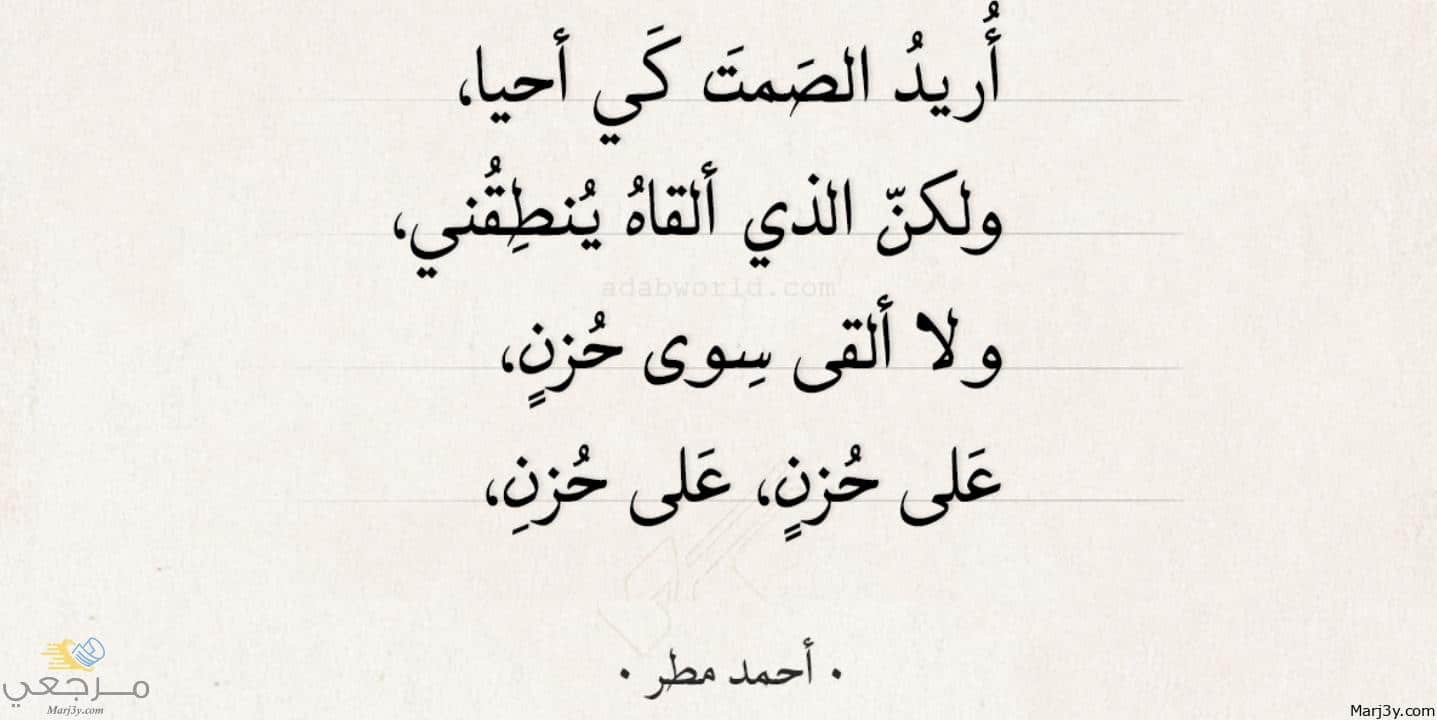 أُريدُ الصَمتَ كَي أحيا،
ولكنّ الذي ألقاهُ يُنطِقُني،
adabworld.com
ولا ألقى سِوى حُزنٍ،
عَلى حُزنٍ، عَلى حُزنِ،
• أحمد مطر •
مرجعي
Marj3y.com
Marj3y.com